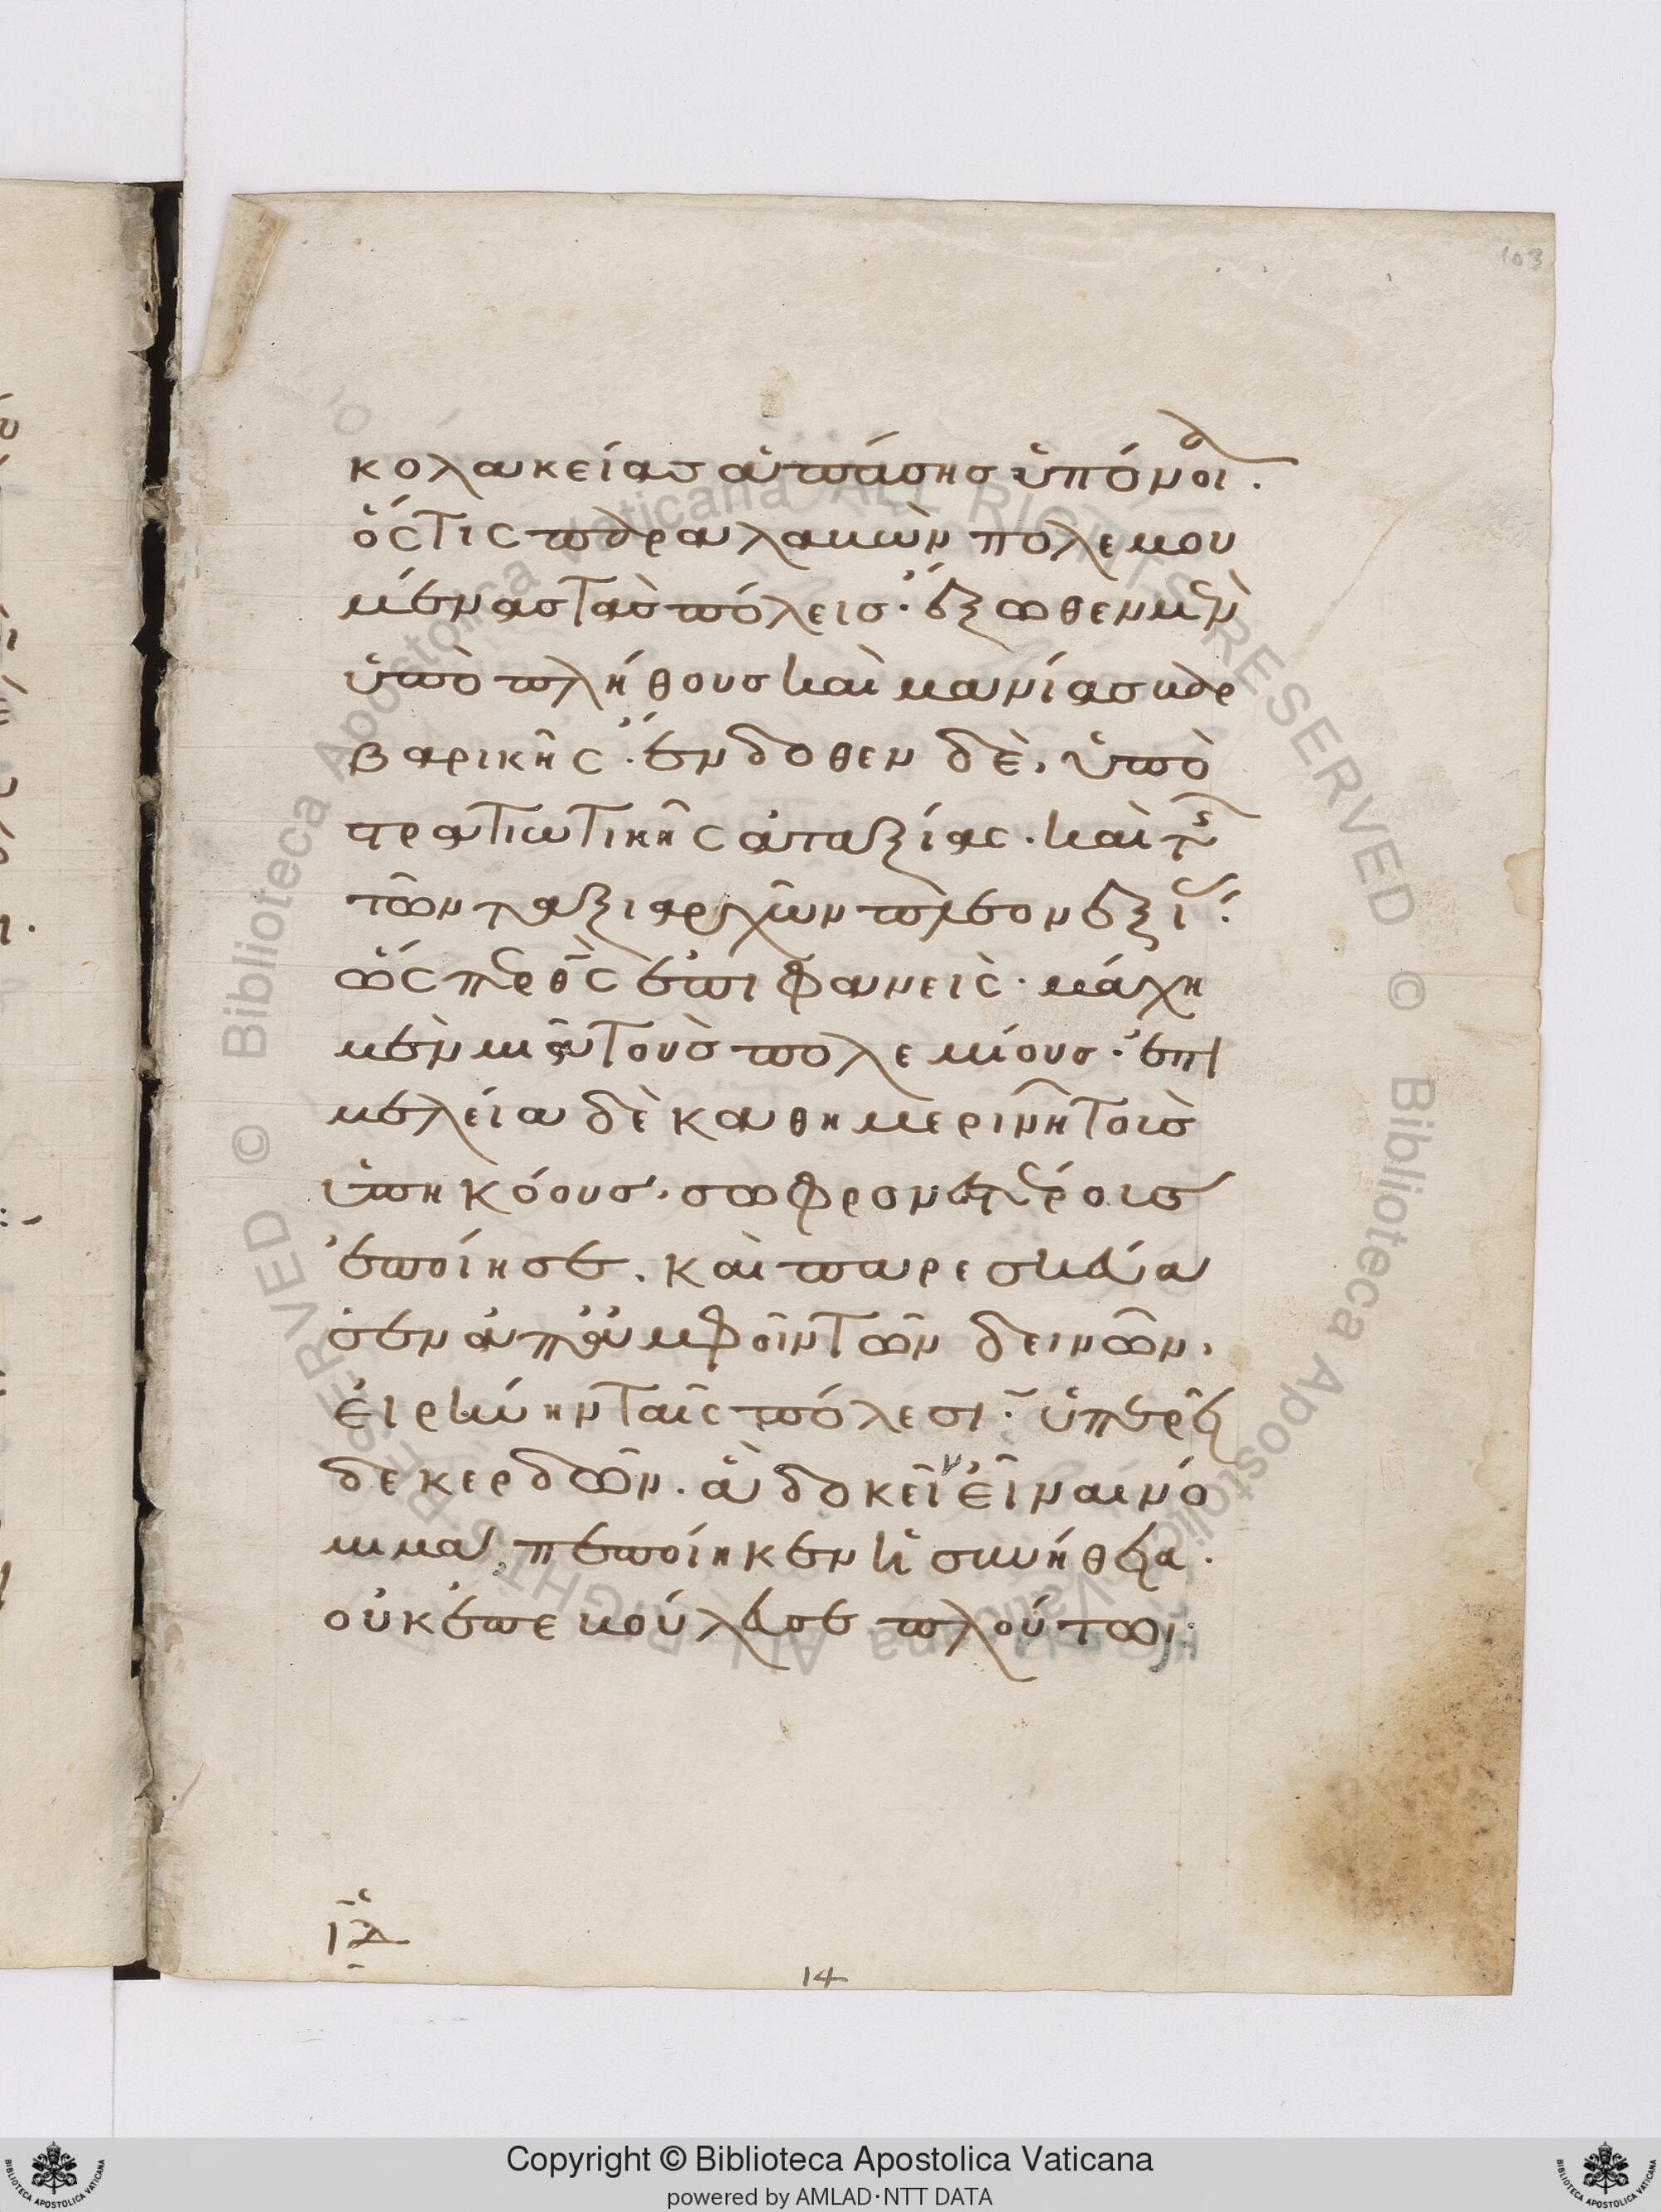 103
κολακείας ἁπάσης ὑπόμοι.
ὅςτις παραλαβὼν πολεμου
μένας τὰς πόλεις· ἔξωθεν μὲν
ὑπὸ πλήθους καὶ μανίας βαρ
βαρικῆς· ἔνδοθεν δὲ, ὑπὸ
στρατιωτικῆς ἀταξίας. καὶ τῆς
τῶν ταξιαρχῶν πλεονεξίας·
ὥσπερ θεὸς ἐπιφανεὶς· μάχη
μὲν μιᾷ τοὺς πολεμίους· ἐπι
μελεία δὲ καθημερινῆ τοὺς
ὑπηκόους, σωφρονεστέροις
ἐποίησε. καὶ παρεσκεύα
σεν ἀπ' ἀμφοῖν τῶν δεινῶν,
εἰρήνην ταῖς πόλεσι· ὑπὲρ
δε κερδῶν. ἃ δοκεῖν εἶναι νό
μιμα, πεποίηκεν ἡ συνήθεια.
οὐκ ἐπεβούλευσε πλούτωι·
ιδ
14
Copyright © Biblioteca Apostolica Vaticana
powered by AMLAD·NTT DATA